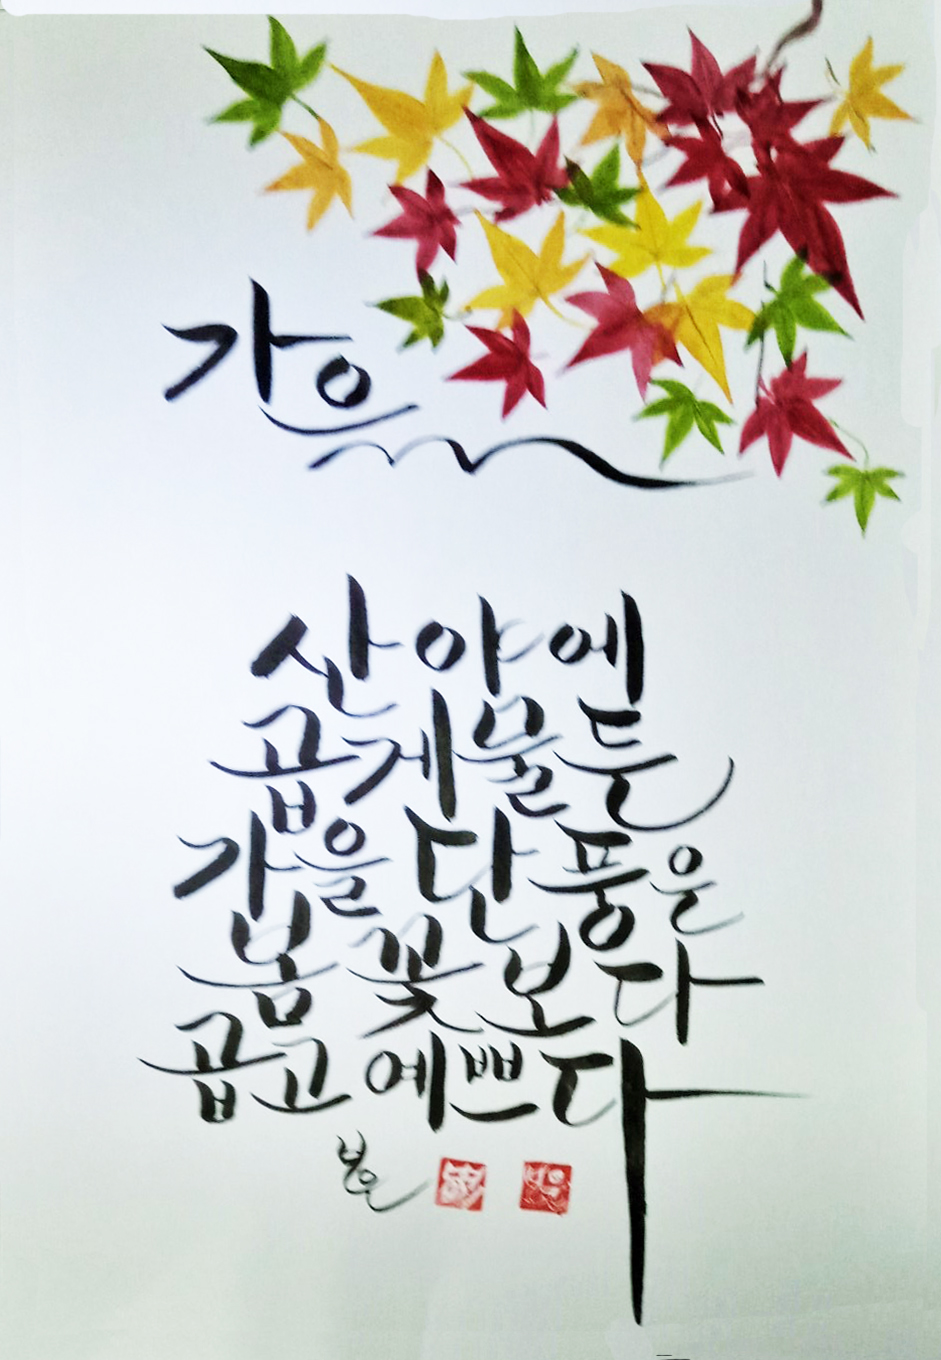 가을
산야에
곱게 물든
가을 단풍은
봄꽃보다
곱고 예쁘다